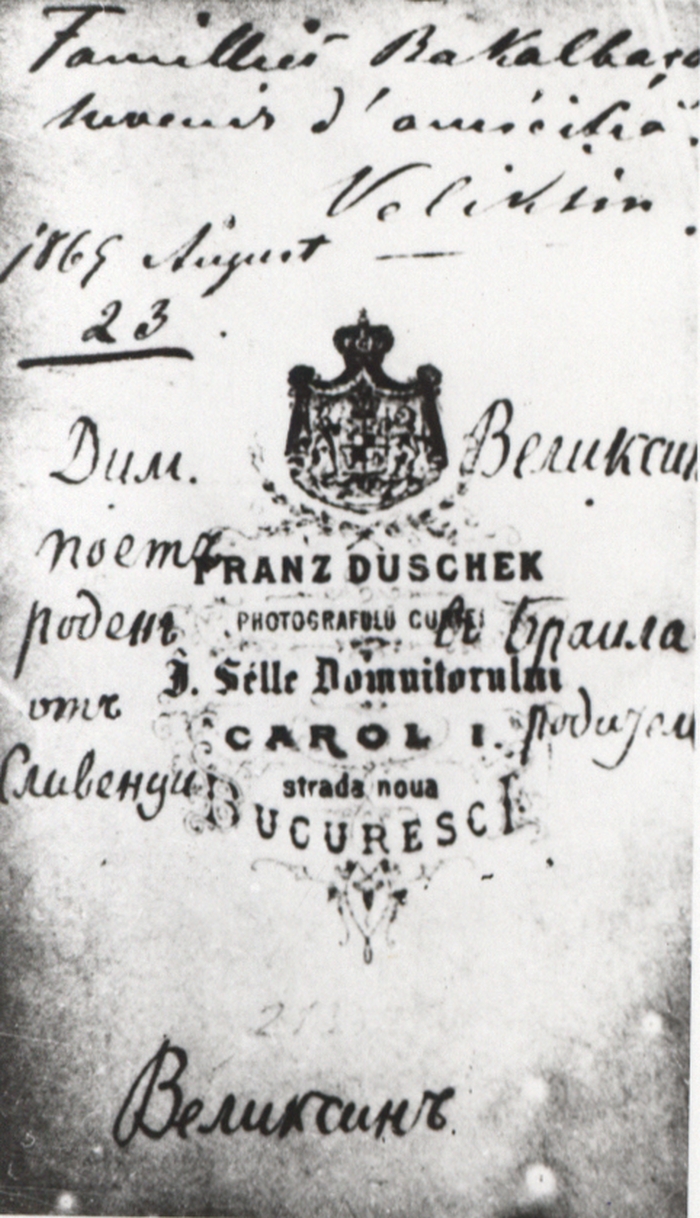 Familliei Bakalbaşo
suvenir d'amiciția.
Veliksin.
1869 August
23.
Дим. Великсин
поетъ
FRANZ DUSCHEK
роденъ въ Браила
PHOTOGRAFULŬ CURŢEI
I. Sélle Domnitorului
отъ родители
CAROL I.
Сливенци
strada noua
BUCURESCI
Великсинъ